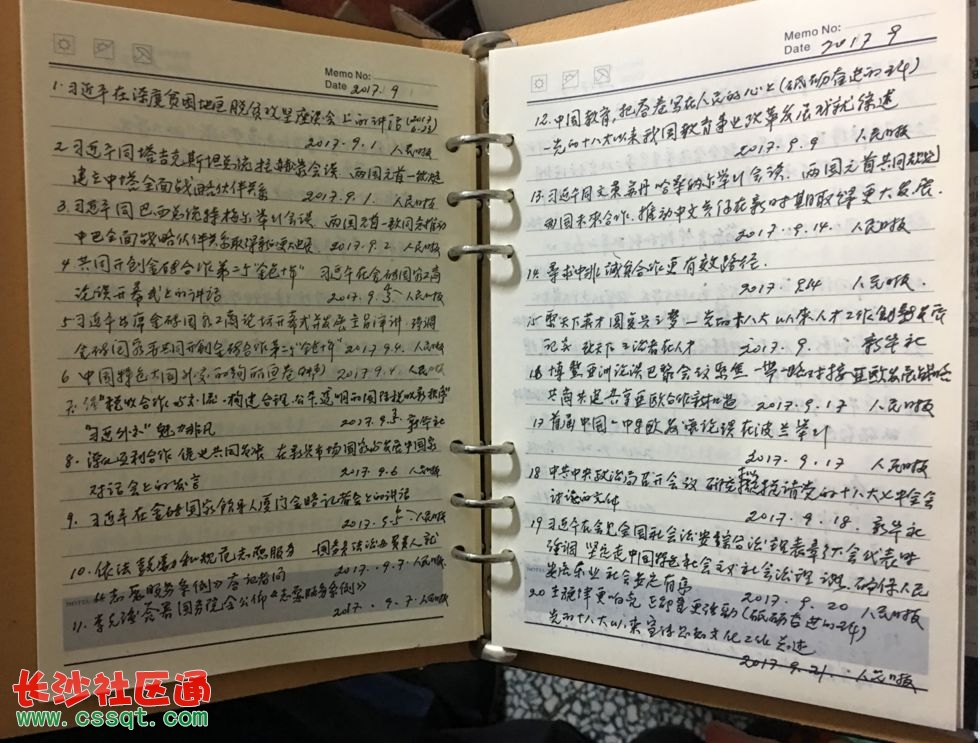 Memo No:
Date 2017.9
1. 习近平在深度贫困地区脱贫攻坚座谈会上的讲话(2017
6.23)
2017.9.1. 人民日报
2. 习近平同塔吉克斯坦总统拉赫蒙会谈 两国元首一致决定
建立中塔全面战略伙伴关系 2017.9.1. 人民日报
3. 习近平同巴西总统特梅尔举行会谈 两国元首一致同意推动
中巴全面战略伙伴关系取得新的更大发展 2017.9.2. 人民日报
4. 共同开创金砖合作第二个"金色十年" 习近平在金砖国家工商
论坛开幕式上的讲话 2017.9. 人民日报
5. 习近平出席金砖国家工商论坛开幕式并发表主旨演讲 强调
金砖国家要共同开创金砖合作第二个"金色十年" 2017.9.4. 人民日报
6. 中国特色大国外交的绚丽画卷 2017.9.4. 人民日报
7. "税收合作" 构建合理公平透明的国际税收新秩序
"习近外交"魅力非凡 2017.9.5 新华社
8. 深化互利合作 促进共同发展 在新兴市场国家与发展中国家
对话会上的发言 2017.9.6 人民日报
9. 习近平在金砖国家领导人厦门会晤记者会上的讲话
2017.9. 人民日报
10. 依法鼓励和规范志愿服务 一国务院法治办负责人就
《志愿服务条例》答记者问 2017.9.7. 人民日报
NOTES
11. 李克强签署国务院令公布《志愿服务条例》
2017.9.7. 人民日报
Memo No:
Date 2017 9
12. 中国教育,把答卷写在人民的心上(砥砺奋进的五年)
一党的十八大以来我国教育事业改革发展成就综述
2017.9.9 人民日报
13. 习近平同文莱苏丹哈桑纳尔举行会谈 两国元首共同
两国未来合作,推动中文关系在新时期取得更大发展.
2017.9.14. 人民日报
14. 寻求中 诚实合作更有效路径.
2017.9.14 人民日报.
15. 聚天下英才圆复兴之梦一党的十八大以来人才工作创新发展
记实 致天下之治者在人才 2017.9. 新华社
16. 博鳌亚洲论坛巴黎会议聚焦一带一路对接亚欧发展战略
共商共建共享亚欧合作 2017.9.17 人民日报
17 首届中国一中东欧 论坛在波兰举行
2017.9.17 人民日报
18 中共中央政治局召开会议 研究拟提请党的十八大七中全会
讨论的文件 2017.9.18. 新华社
19 习近平在会见全国社会治安综合治 表彰大会代表时
强调 坚定走中国特色社会主义社会治理 确保人民
安居乐业 社会安定有序 2017.9.20 人民日报
NOTES
20 主旋律更响亮 正能量更强劲(砥砺奋进的五年)
党的十八大以来宣传思想文化工作 述
2017.9.21. 人民日报
长沙社区通
www.cssqt.com